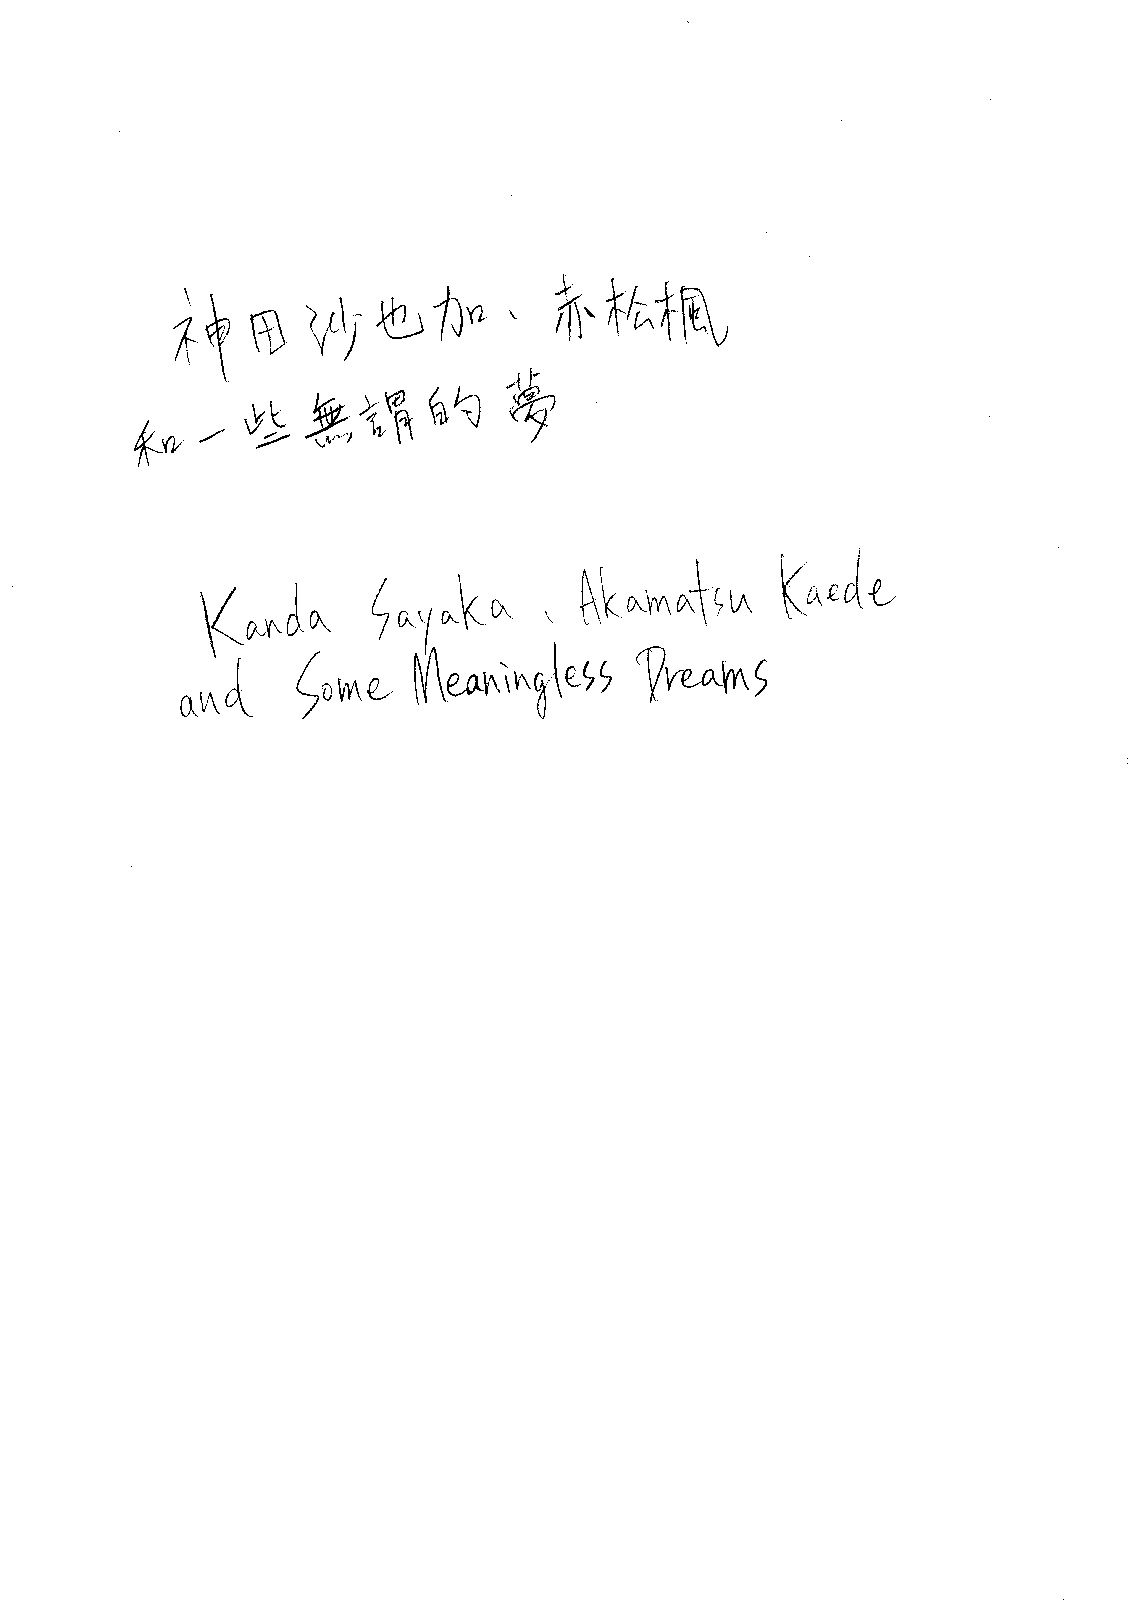 神田沙也加、赤松楓
和一些無謂的夢
Kanda Sayaka、Akamatsu Kaede
and Some Meaningless Dreams